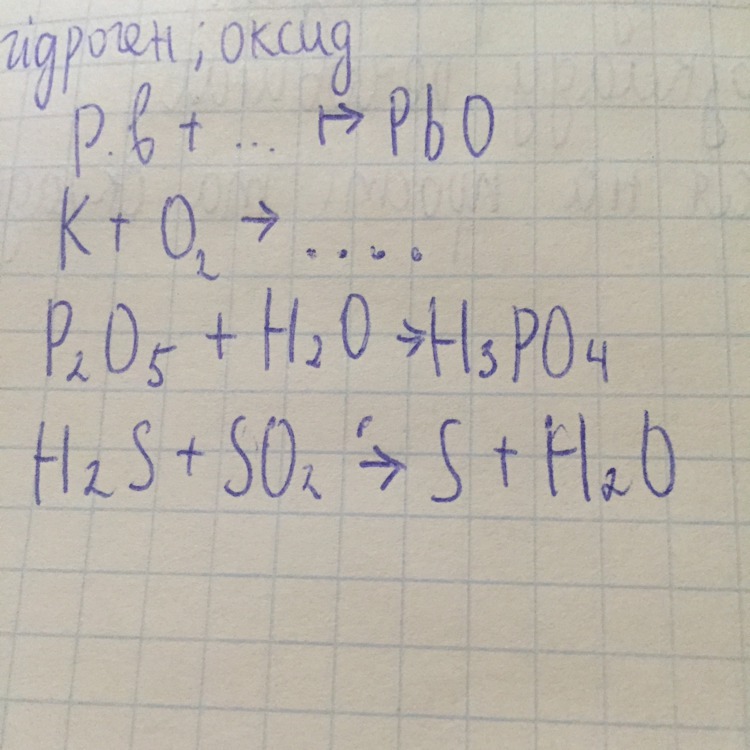 гідроген; оксид
P.b + ... → PbO
K + O₂ → ....
P₂O₅ + H₂O → H₃PO₄
H₂S + SO₂ → S + H₂O